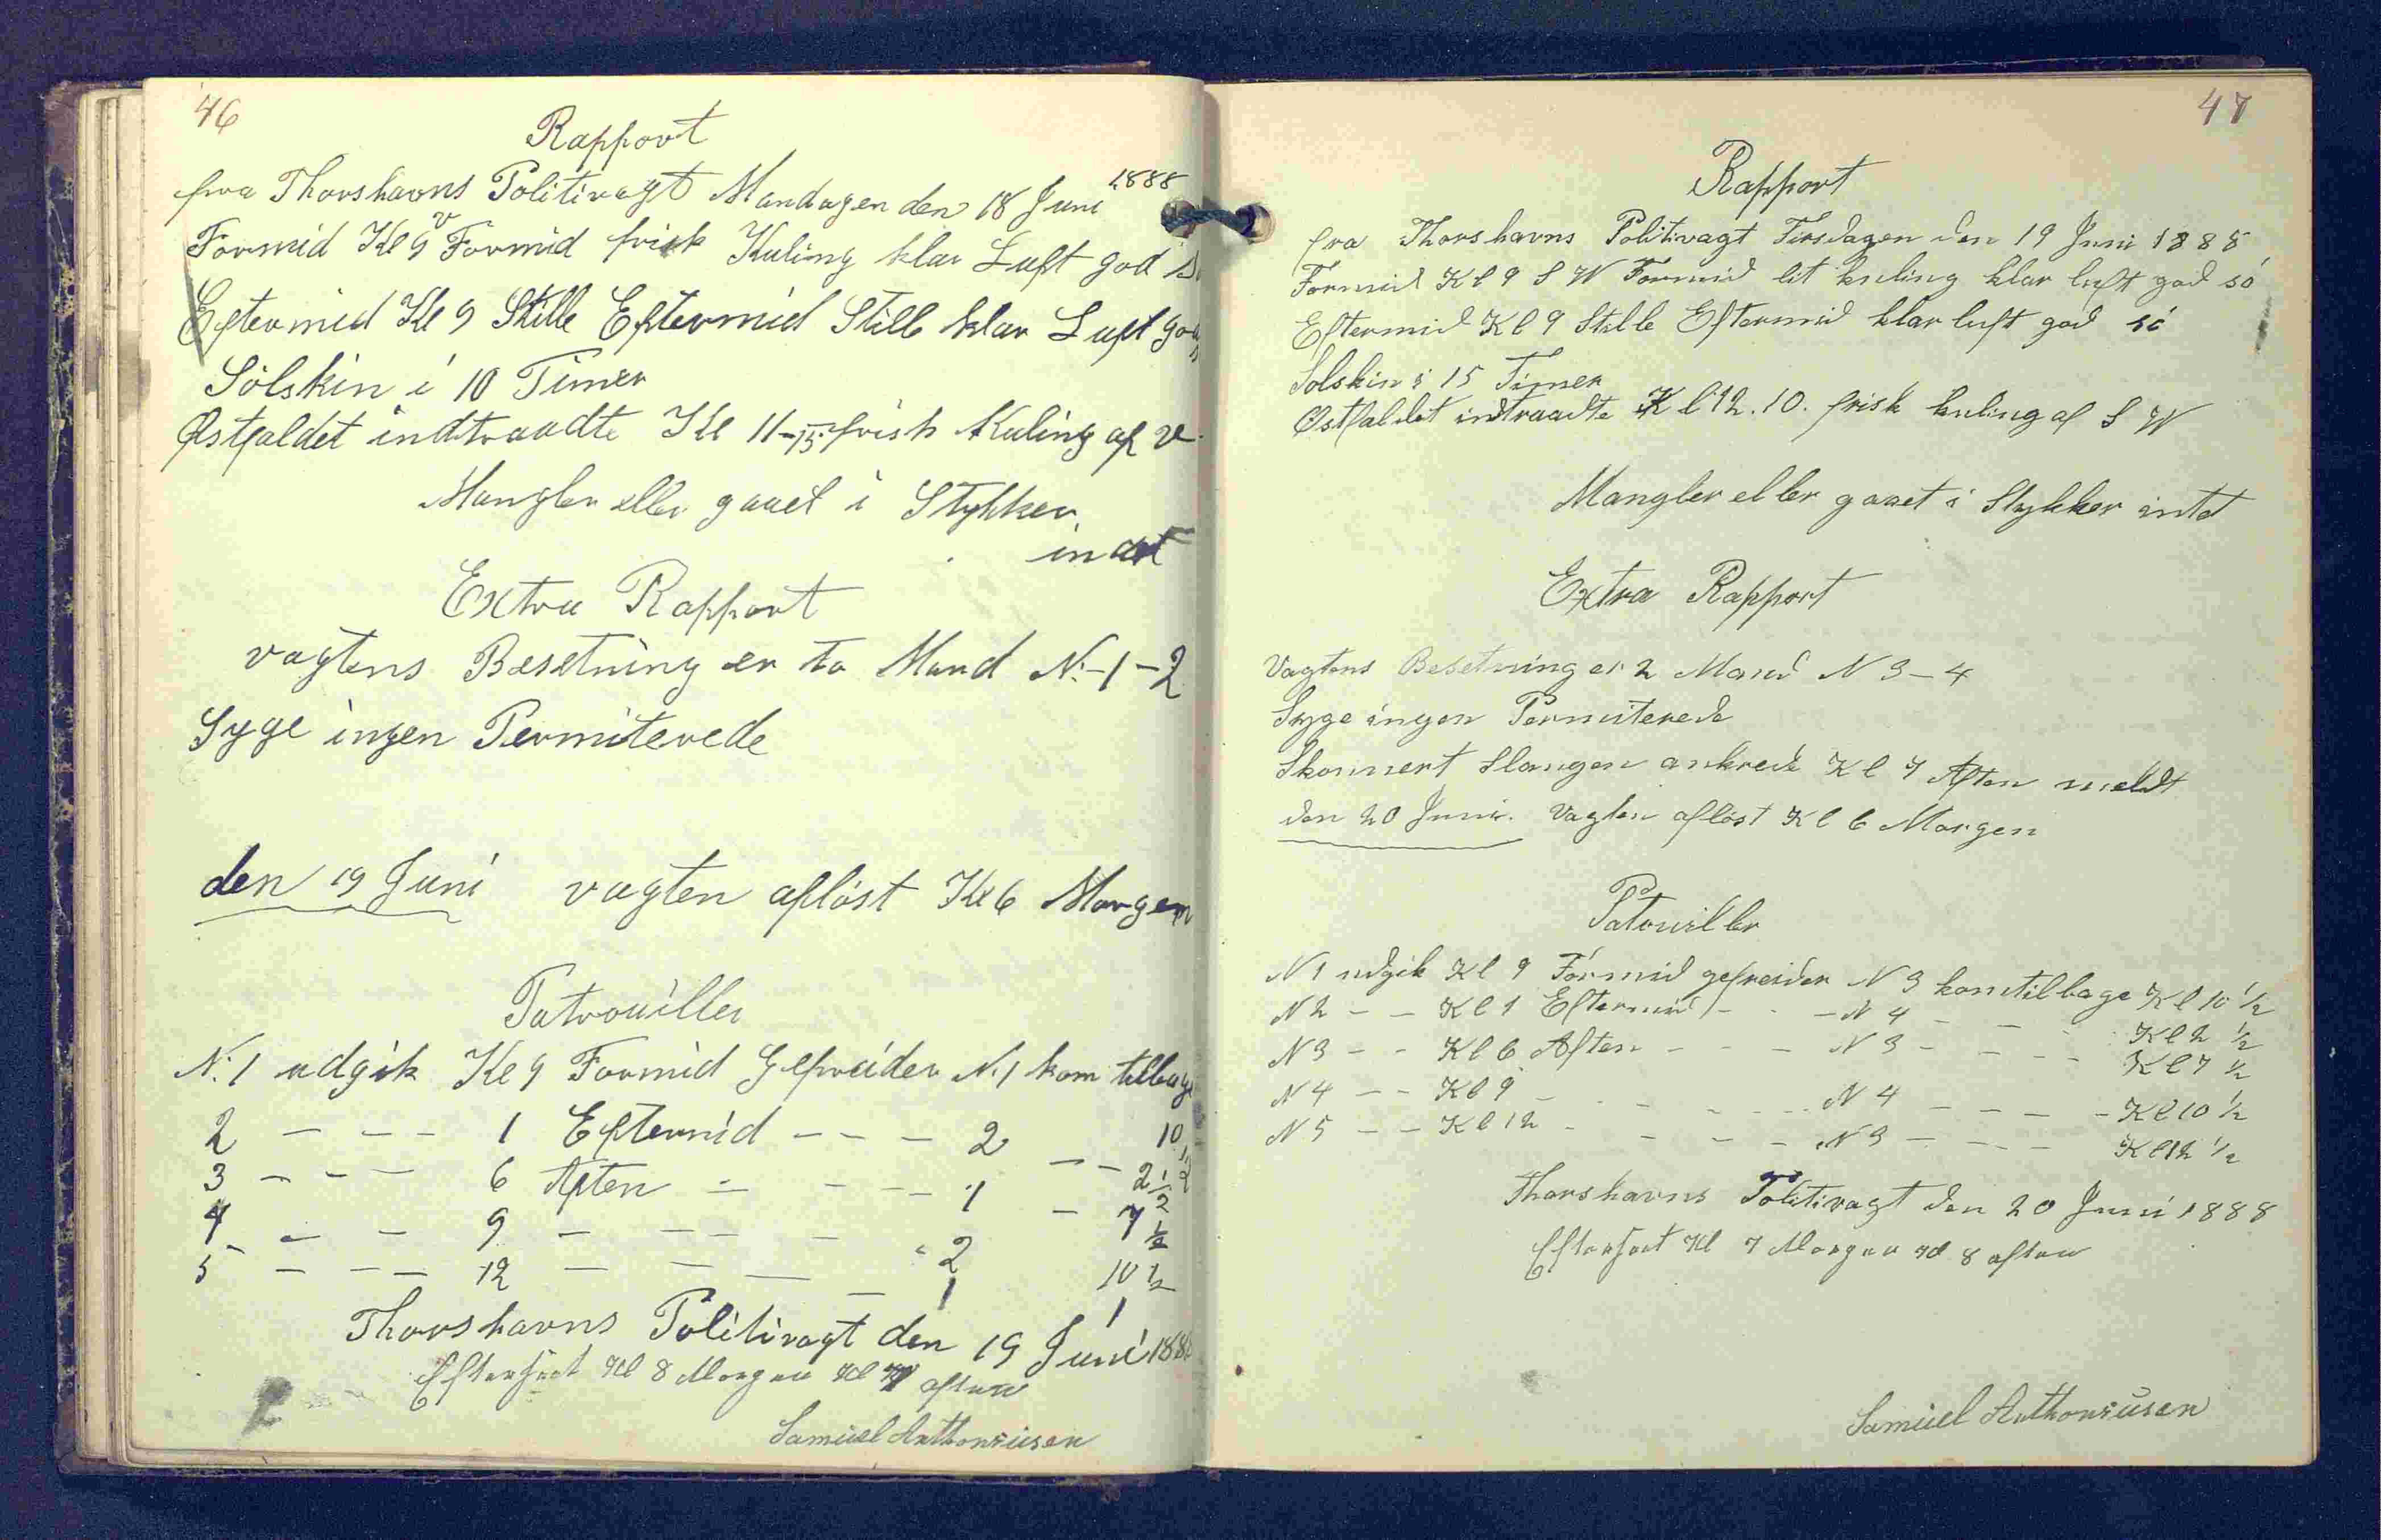 46
Rapport
fra Thorshavns Politivagt Mandagen den 18 Juni 1888
Formid Kl 9 v Formid frisk Kuling klar Luft god
Eftermid Kl 9 Stille Eftermid Still klar Luft god
Sólskin i 10 Timer
Østfaldet indtraadte Kl 11-15 frisk Kuling af v.
Mangler eller gaaet i Stykker
indet
Extra Rapport
vagtens Besetning er to Mand N.-1-2
Syge ingen Permiterede
den 19 Juni vagten aflöst Kl 6 Morgen
Patrouiller
N. 1 udgik Kl 9 Formid Gefreider N. 1 kom tilbage
2 - - - 1 Eftermid - - - 2 10 1/2
3 - - - 6 Aften - - - - 1 - - 2 1/2
4 - - - 9 - - - - 2 - 7 1/2
5 - - - 12 - - - - 1 10 1/2
1
Thorshavns Politivagt den 19 Juni 1888
Efterseet Kl 8 Morgen Kl 7 aften
Samuel Anthoniusen
47
Rapport
fra Thorshavns Politivagt Tirsdagen den 19 Juni 1888
Formid Kl 9 S W Formid lit kuling klar luft god só
Eftermid Kl 9 Stille Eftermid klar luft god só
Solskin i 15 Timer
Østfaldet indtraadte Kl 12.10. frisk kuling af S W
Mangler eller gaaet i Stykker intet
Extra Rapport
Vagtens Besetning er 2 Mand N 3-4
Syge ingen Permiterede
Skonnert Slangen ankrede Kl 7 Aften meldt
den 20 Juni. Vagten aflöst Kl 6 Morgen
Patouiller
N 1 udgik Kl 9 Formid gefreider N 3 kom tilbage Kl 10 1/2
N 2 - - Kl 1 Eftermid - - - N 4 - - - Kl 2 1/2
N 3 - - Kl 6 Aften - - - N 3 - - - - Kl 7 1/2
N 4 - - Kl 9 - - - - - N 4 - - - - Kl 10 1/2
N 5 - - Kl 12 - - - - - N 3 - - - Kl 12 1/2
Thorshavns Politivagt den 20 Juni 1888
Efterseet Kl 7 Morgen Kl 8 aften
Samuel Anthoniusen